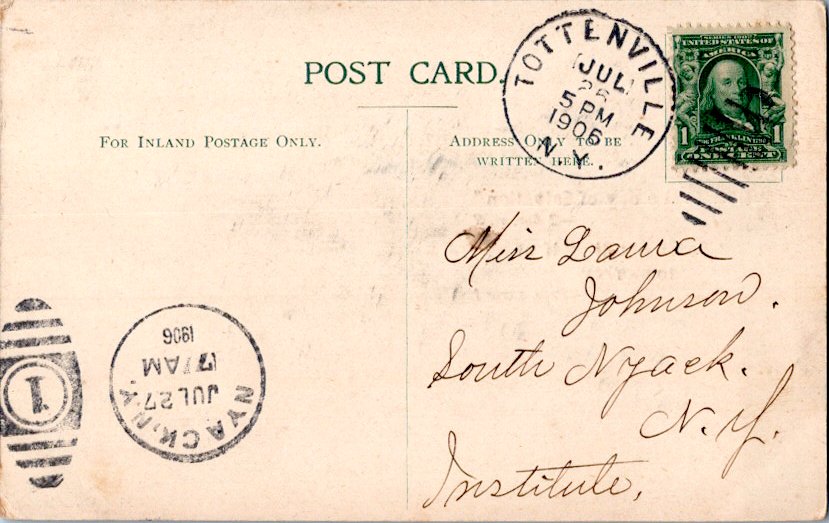 POST CARD.
FOR INLAND POSTAGE ONLY.
ADDRESS ONLY TO BE
WRITTEN HERE.
TOTTENVILLE
JUL
5 PM
1906
N.Y.
SERIES 1902
UNITED STATES OF
AMERICA
1 1
FRANKLIN
POSTAGE
ONE CENT
Miss Laura
Johnson.
South Nyack.
N. Y.
Institute.
NYACK, N.Y.
JUL 27
7 AM
1906
1